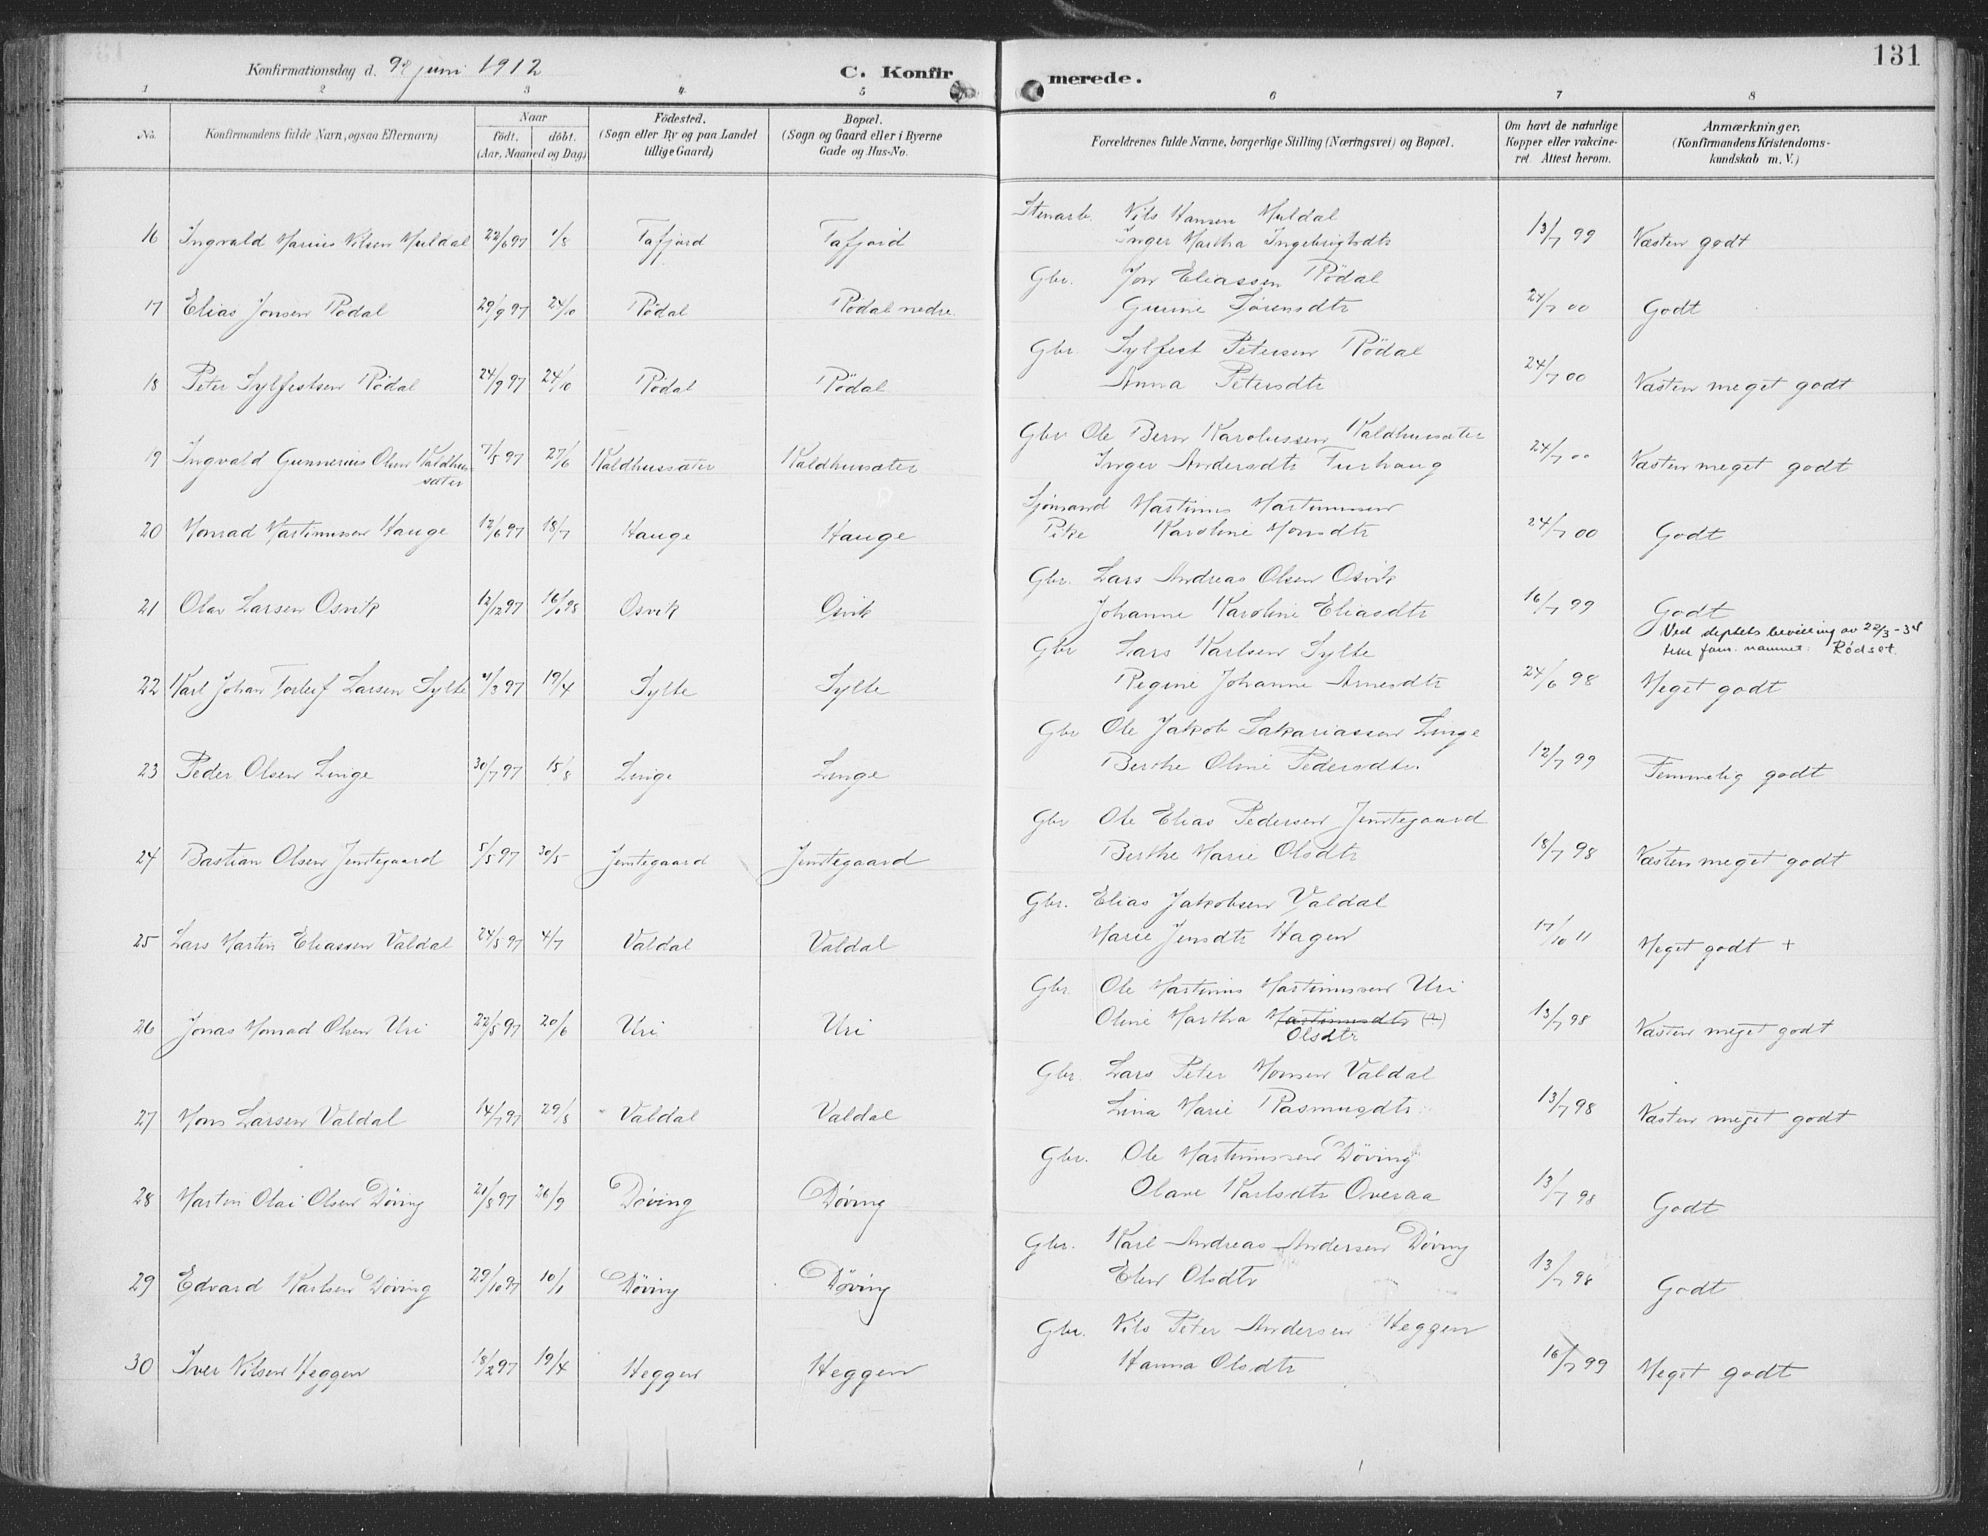 131
Konfirmationsdag d. 9de juni 1912
C. Konfirmerede.
1 2 3 4 5 6 7 8
No.
Konfirmandens fulde Navn, ogsaa Efternavn)
Naar
født. døbt.
(Aar, Maaned og Dag)
Fødested.
(Sogn eller By og paa Landet
tillige Gaard)
Bopæl.
(Sogn og Gaard eller i Byerne
Gade og Hus-No.
Forældrenes fulde Navne, borgerlige Stilling (Næringsvei) og Bopæl.
Om havt de naturlige
Kopper eller vakcine-
ret Attest herom.
Anmærkninger.
(Konfirmandens Kristendoms-
kundskab m. V.)
16 Ingvald Marius Nilsen Muldal 22/6 97 1/8 Tafjord Tafjord
Stenarb. Nils Hansen Muldal
Inger Martha Ingebrigtsdtr 13/7 99 Næsten godt
17 Elias Jonsen Rødal 29/9 97 24/10 Rødal Rødal nedre
Gbr. Jon Eliassen Rødal
Gurine Sørensdtr 24/7 00 Godt
18 Peter Sylfestsen Rødal 24/9 97 24/10 Rødal Rødal
Gbr. Sylfest Petersen Rødal
Anna Petersdtr 24/7 00 Næsten meget godt
19 Ingvald Gunnerius Olsen Kaldhus
sæter 7/5 97 27/6 Kaldhussæter Kaldhussæter
Gbr Ole Bern Karolussen Kaldhussæter
Inger Andersdtr Furhaug 24/7 00 Næsten meget godt
20 Konrad Martinussen Hauge 12/6 97 18/7 Hauge Hauge
Sjømand Martinus Martinussen
Pike Karoline Monsdtr 24/7 00 Godt
21 Olav Larsen Osvik 12/12 97 16/1 98 Osvik Osvik
Gbr. Lars Andreas Olsen Osvik
Johanne Karoline Eliasdtr 16/7 99 Godt
Ved deptets bevilling av 22/3-34
fam. namnet: Rødset.
22 Karl Johan Torleif Larsen Sylte /3 97 19/4 Sylte Sylte
Gbr Lars Karlsen Sylte
Regine Johanne Arnesdtr 24/6 98 Meget godt
23 Peder Olsen Linge 30/7 97 15/8 Linge Linge
Gbr Ole Jakob Sakariassen Linge
Berthe Oline Pedersdtr. 12/7 99 Temmelig godt
24 Bastian Olsen Jemtegaard 5/5 97 30/5 Jemtegaard Jemtegaard
Gbr Ole Elias Pedersen Jemtegaard
Berthe Marie Olsdtr 18/7 98 Næsten meget godt
25 Lars Martin Eliassen Valdal 24/5 97 4/7 Valdal Valdal
Gbr. Elias Jakobsen Valdal
Marie Jensdtr Hagen 17/10 11 Meget godt +
26 Jonas Konrad Olsen Uri 22/5 97 20/6 Uri Uri
Gbr. Ole Martinus Martinussen Uri
Oline Martha Martinusdtr (?)
Olsdtr 13/7 98 Næsten meget godt
27 Mons Larsen Valdal 14/7 97 29/8 Valdal Valdal
Gbr. Lars Peter Monsen Valdal
Lina Marie Rasmusdtr. 13/7 98 Næsten meget godt
28 Martin Olai Olsen Døving 21/8 97 26/9 Døving Døving
Gbr. Ole Martinussen Døving
Olave Karlsdtr Overaa 13/7 98 Godt
29 Edvard Karlsen Døving 29/10 97 10/1 Døving Døving
Gbr. Karl Andreas Andersen Døving
Elen Olsdtr 13/7 98 Godt
30 Iver Nilsen Heggen 18/2 97 19/4 Heggen Heggen
Gbr. Nils Peter Andersen Heggen
Hanna Olsdtr 16/7 99 Meget godt